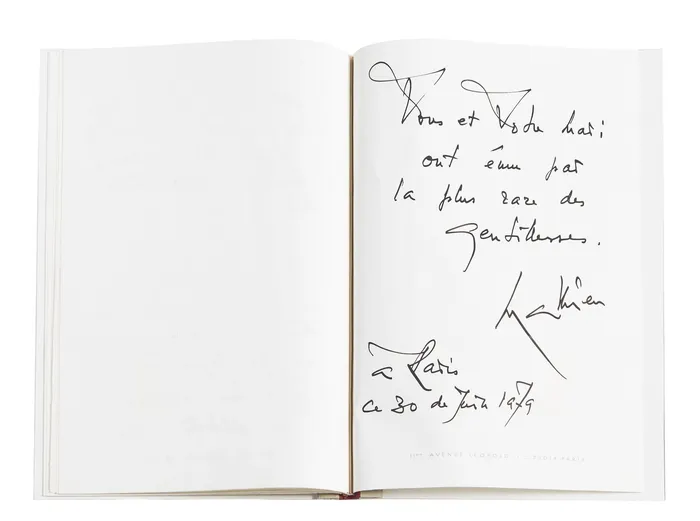 Vous et Votre mari
ont ému par
la plus rare des
gentillesses.
Mathieu
à Paris
ce 30 de Juin 1979
AVENUE